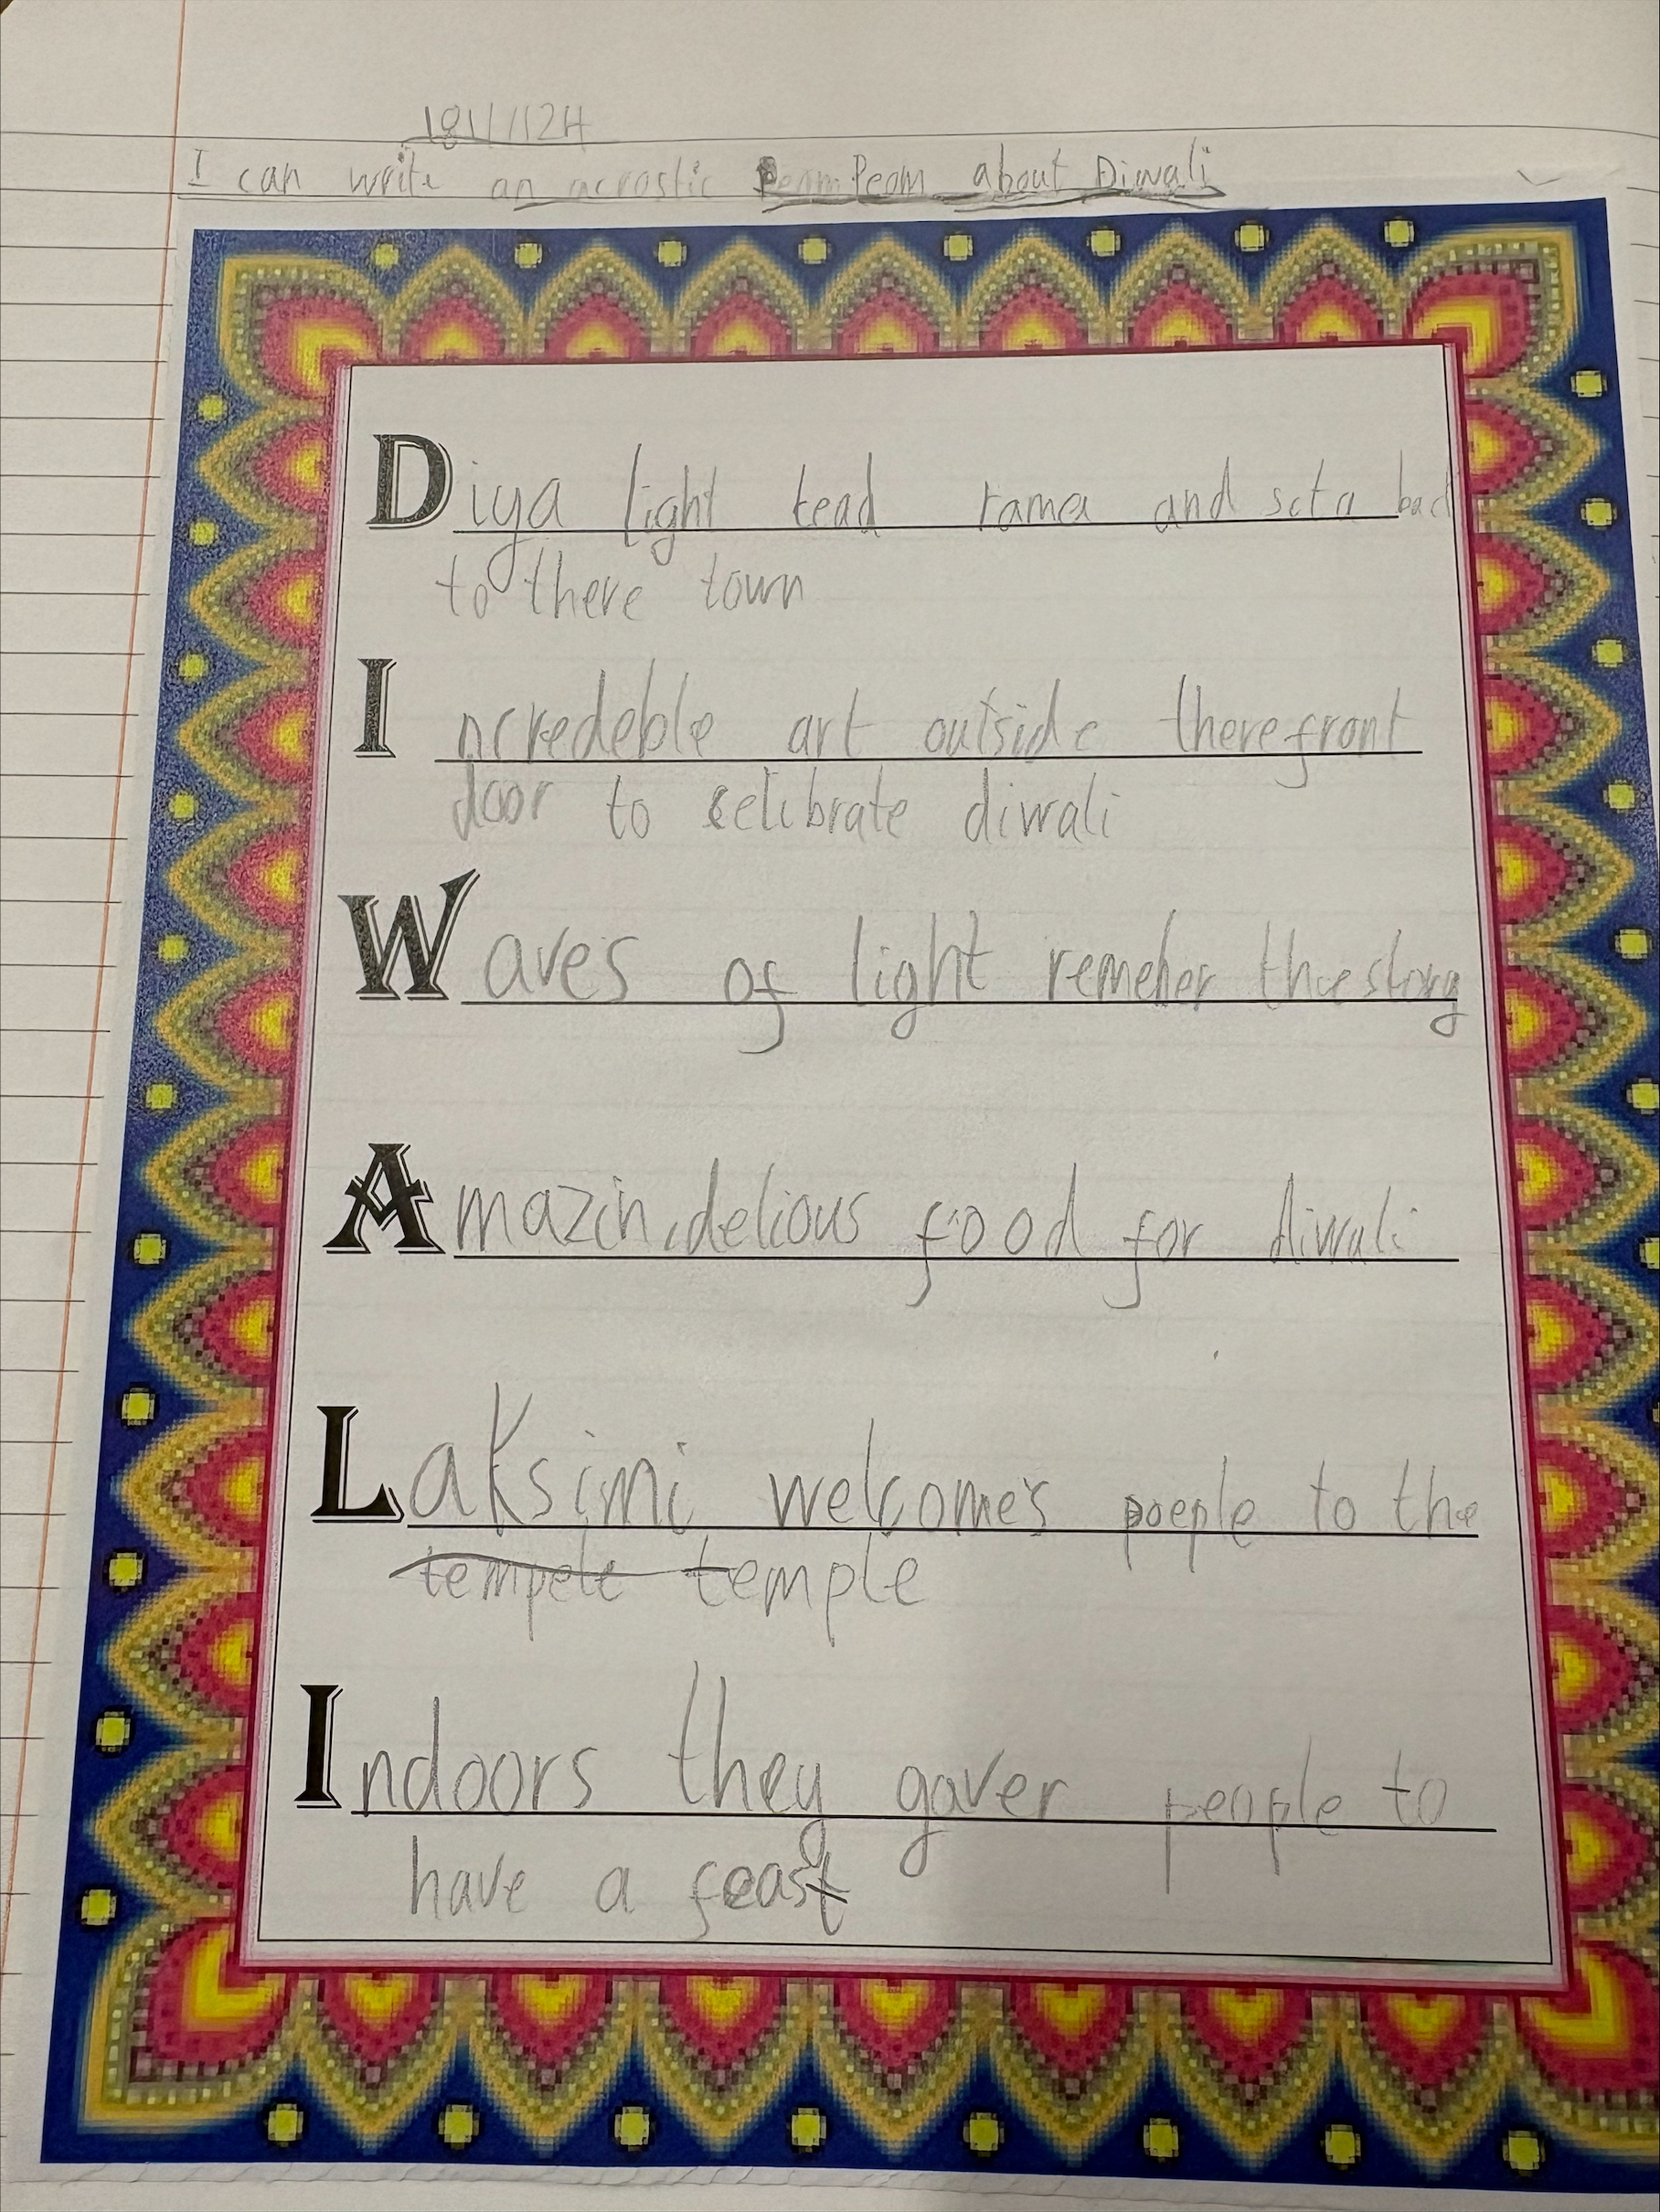 18/11/24
I can write an acrostic Peom about Diwali
Diya light lead rama and sita bac
to there town
Incredeble art outside there front
door to celibrate diwali
Waves of light remeber the story
Amazin, delious food for diwali
Laksimi welcomes poeple to the
tempele temple
Indoors they gaver people to
have a feast